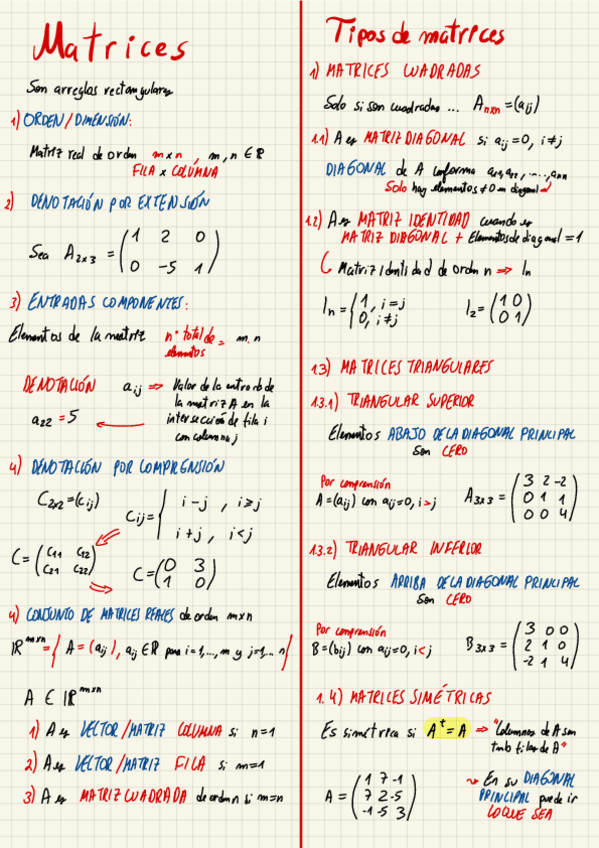 Matrices
Son arreglos rectangulares
1) ORDEN/DIMENSIÓN:
Matriz real de orden m x n , m, n ∈ ℝ
FILA x COLUMNA
2) DENOTACIÓN POR EXTENSIÓN
Sea A₂ₓ₃ = (1 2 0
0 -5 1)
3) ENTRADAS COMPONENTES:
Elementos de la matriz nº total de elementos = m.n
DENOTACIÓN aᵢⱼ ⇒ Valor de la entrada de
la matriz A en la
intersección de fila i
con columna j
a₂₂ = 5 ←
4) DENOTACIÓN POR COMPRENSIÓN
C₂ₓ₂ = (cᵢⱼ) Cᵢⱼ = { i-j , i⩾j
i+j , i<j
C = (C₁₁ C₁₂
C₂₁ C₂₂) ⇒ C = (0 3
1 0)
4) CONJUNTO DE MATRICES REALES de orden mxn
ℝᵐˣⁿ = { A = (aᵢⱼ), aᵢⱼ ∈ ℝ para i=1,...,m y j=1,... n}
A ∈ ℝᵐˣⁿ
1) A es VECTOR/MATRIZ COLUMNA si n=1
2) A es VECTOR/MATRIZ FILA si m=1
3) A es MATRIZ CUADRADA de orden n si m=n
Tipos de matrices
1) MATRICES CUADRADAS
Solo si son cuadradas ... Aₙₓₙ = (aᵢⱼ)
1.1) A es MATRIZ DIAGONAL si aᵢⱼ=0, i≠j
DIAGONAL de A conforma a₁₁, a₂₂, ..., aₙₙ
Solo hay elementos ≠ 0 en diagonal
1.2) A es MATRIZ IDENTIDAD cuando es
MATRIZ DIAGONAL + Elementos de diagonal = 1
Matriz Identidad de orden n ⇒ Iₙ
Iₙ = { 1, i=j
0, i≠j
I₂ = (1 0
0 1)
1.3) MATRICES TRIANGULARES
1.3.1) TRIANGULAR SUPERIOR
Elementos ABAJO DE LA DIAGONAL PRINCIPAL
son CERO
Por comprensión
A = (aᵢⱼ) con aᵢⱼ=0, i>j A₃ₓ₃ = (3 2 -2
0 1 1
0 0 4)
1.3.2) TRIANGULAR INFERIOR
Elementos ARRIBA DE LA DIAGONAL PRINCIPAL
son CERO
Por comprensión
B = (bᵢⱼ) con aᵢⱼ=0, i<j B₃ₓ₃ = (3 0 0
2 1 0
-2 1 4)
1.4) MATRICES SIMÉTRICAS
Es simétrica si Aᵗ = A ⇒ "Columnas de A son
tmb filas de A"
A = (1 7 -1
7 2 -5
-1 -5 3)
En su DIAGONAL
PRINCIPAL puede ir
LO QUE SEA